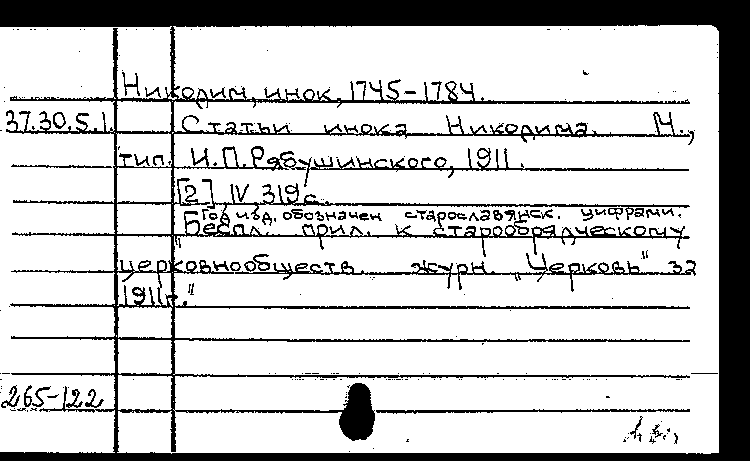 Никодим, инок, 1745-1784.
37.30.5.1. Статьи инока Никодима. М.,
тип. И.П.Рябушинского, 1911.
[2], IV, 319 с.
Год изд. обозначен старославянск. цифрами.
"Беспл. прил. к старообрядческому
церковнообществ. журн. „Церковь" за
1911г."
265-122